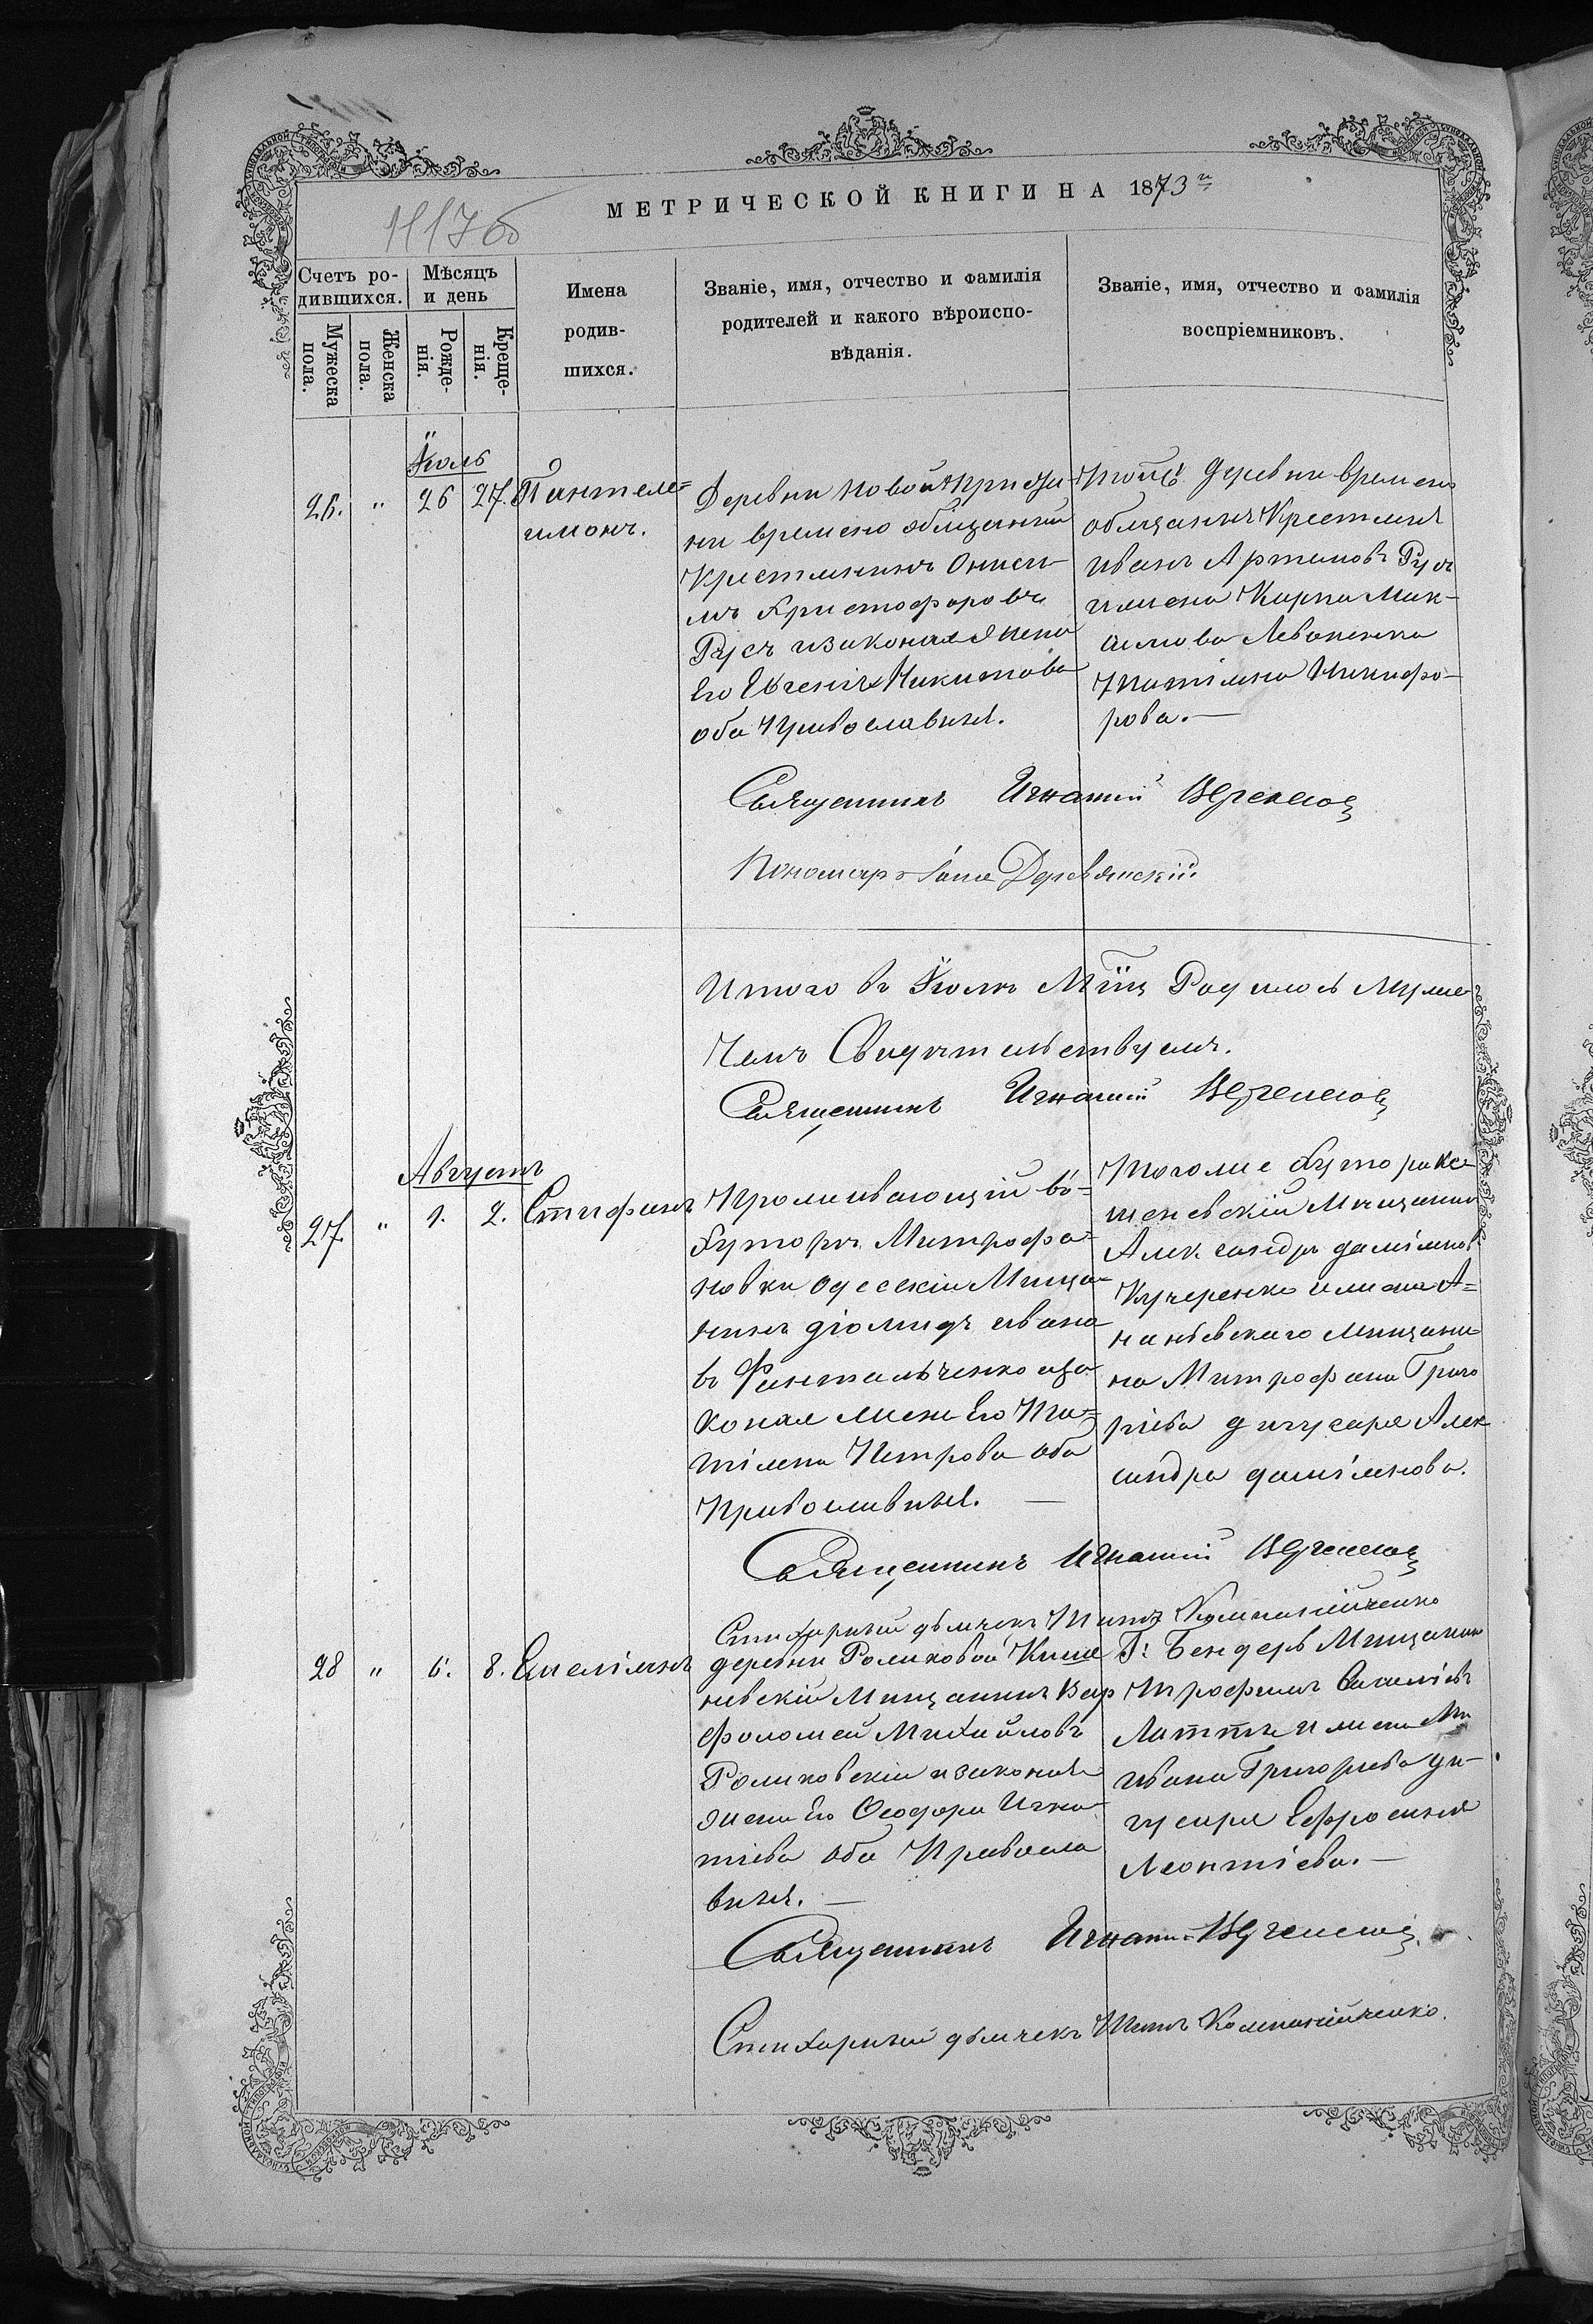 МЕТРИЧЕСКОЙ КНИГИ НА 1873
Счетъ ро-
дившихся.
Мужеска
пола.
Женска
пола.
Мѣсяцъ
и день
Рожде-
нія.
Креще-
нія.
Имена
родив-
шихся.
Званіе, имя, отчество и фамилія
родителей и какого вѣроиспо-
вѣданія.
Званіе, имя, отчество и фамилія
воспріемниковъ.
Іюль
26. " 26 27. Пантеле=
имонъ.
Деревни Новой
ни времено обязанный
КрестьянинъОниси-
мъ Христофоровъ
Русъ изаконая жена
Его Евгенія Никитова
оба Православныя.
Тойже деревни времено
обязанны Крестьяне
иванъ Артемовъ Русъ
ижена Карпа Мак-
симова Леваненка
Татіяна Никифо-
рова.—
Священникъ Игнатій
Пономарь Деревянскій
Итого въ Іюлѣ Мцѣ Родилось Муже
Чемъ Свидѣтельствуемъ.
Священникъ Игнатій
Августъ
27. " 1. 2. Стефанъ
Проживающій въ=
Хуторѣ Митрофа-
новки одесскій Мѣща-
нинъ діомидъ ивано
въ Фантальченко иза
коная жена Его Та=
тіяна Петрова оба
Православныя. —
Тогоже Хутора Ки-
шеневскій Мѣщанинъ
Александръ даміановъ
Кучеренко ижена А=
наньевскаго мѣщани-
на Митрофана Григо
ріева дигусара Алек
сандра даміянова.
Священникъ Игнатій
Стихарный дьячекъ Титъ Компанійченко
28 " 6. 8. Емеліянъ
деревни Полиховой Кише
невскій Мѣщанинъ Вар
фоломей Михайловъ
Полиховскій изаконая
жена Его Феодора Игна-
тіева оба Правосла
вныя. —
Г: Бендеръ Мѣщанинъ
Трофимъ
ижена
ивана Григорьева ди-
гусара Ефросинія
Леонтіева.—
Священникъ Игнатій
Стихарный дьячекъ Титъ Компанійченко.